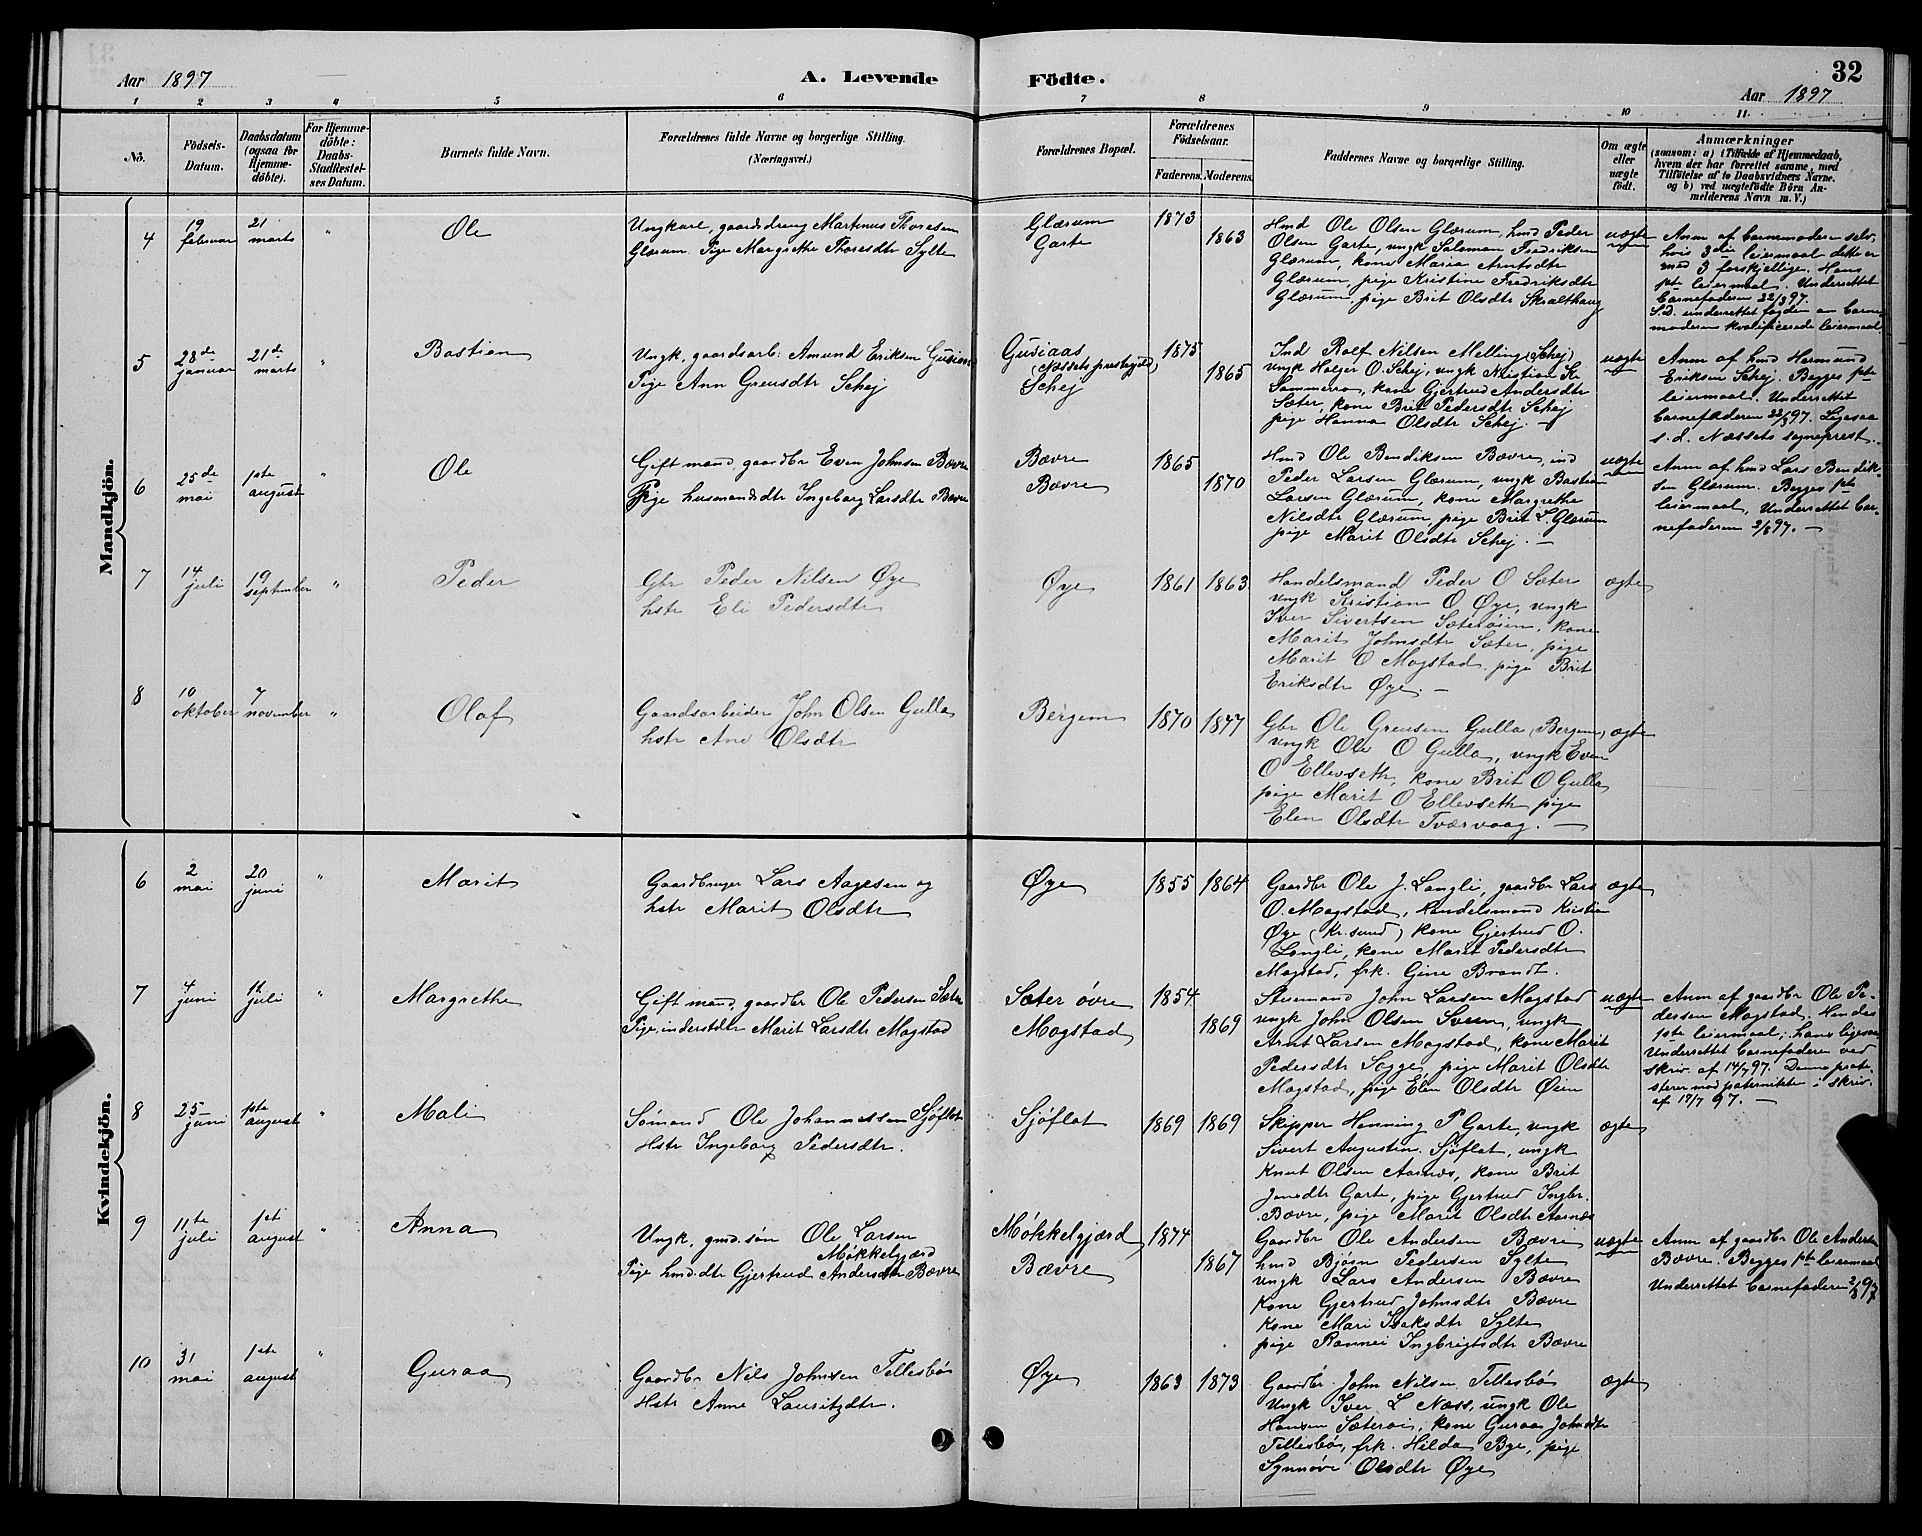 Aar 1897
A. Levende
Födte.
32
Aar 1897
1 2 3 4 5 6 7 8 9 10 11
No.
Födsels-
Datum.
Daabsdatum
(ogsaa for
Hjemme-
döbte).
For Hjemme-
döbte:
Daabs-
Stadfæstel-
ses Datum.
Barnets fulde Navn.
Forældrenes fulde Navne og borgerlige Stilling.
(Næringsvei.)
Forældrenes Bopæl.
Forældrenes
Födselsaar.
Faderens. Moderens.
Faddernes Navne og borgerlige Stilling.
Om ægte
eller
uægte
födt.
Anmærkninger
(saasom: a) i Tilfælde af Hjemmedaab,
hvem der har forrettet samme, med
Tilföielse af to Daabsvidners Navne,
og b) ved uægtefödte Börn An-
melderens Navn m. V.)
Mandkjön.
4
19
februar
21
marts
"
Ole
Ungkarl, gaardsdreng Martinus Thoresen
Glærum. Pige Margrethe Thoresdtr Sylte
Glærum
Garte
1873
1863
Hmd Ole Olsen Glærum, hmd Peder
Olsen Garte, ungk Salomon Fredriksen
Glærum, kone Maria Arntsdtr
Glærum, pige Kristine Fredriksdtr
Glærum, pige Brit Olsdtr Skralthaug
uægte
Anm af barnemoderen selv,
hvis 3die leiermaal dette er
med 3 forskjellige. Hans
1ste leiermaal. Underrettet
barnefaderen 22/3 97.
S.D. underrettet fogden om barne-
moderens kvalificerede leiermaal
5
28de
januar
21de
marts
"
Bastian
Ungk. gaardsarb. Amund Eriksen Gusiaas
Pige Ann Greusdtr Schej
Gusiaas
(Næssets prestegjeld)
Schej
1875
1865
Ind Rolf Nilsen Melling (Schej)
ungk Holger O. Schej, ungk Kristian Kr
Sommerro, kone Gjertrud Andersdtr
Sæter, kone Brit Pedersdtr Schej
pige Hanna Olsdtr Schej. —
uægte
Anm af hmd Hermund
Eriksen Schej. Begges 1ste
leiermaal. Underrettet
barnefaderen 22/3 97. Ligesaa
s.d. Næssets sogneprest.
6
25de
mai
1ste
august
"
Ole
Gift mand, gaardbr Even Johnsen Bævre
Pige husmandsdtr Ingeborg Larsdtr Bævre
Bævre
Bævre
1865
1870
Hmd Ole Bendiksen Bævre, ind
Peder Larsen Glærum, ungk Bastian
Larsen Glærum, kone Margrethe
Nilsdtr Glærum, pige Brit L. Glærum
pige Marit Olsdtr Schej. —
uægte
Anm af hmd Lars Bendik-
sen Glærum. Begges 1ste
leiermaal. Underrettet bar-
nefaderen 2/8 97. —
7
14
juli
19
september
"
Peder
Gbr Peder Nilsen Øye
hstr Eli Pedersdtr
Øye
1861 1863
Handelsmand Peder O Sæter
ungk Kristian O Øye, ungk
Iver Sivertsen Sæterøien, kone
Marit Johnsdtr Sæter, pige
Marit O Mogstad, pige Brit
Eriksdtr Øye. —
ægte
8
10
oktober
7
november
"
Olaf
Gaardsarbeider John Olsen Gulla
hstr Ane Olsdtr
Bergem
1870 1877
Gbr Ole Greusen Gulla (Bergem)
ungk Ole O Gulla, ungk Even
O Ellevseth, kone Brit O Gulla
pige Marit O Ellevseth, pige
Elen Olsdtr Tværvaag. —
ægte
Kvindekjön.
6
2
mai
20
juni
"
Marit
Gaardbruger Lars Aagesen og
hstr Marit Olsdtr
Øye
1855 1864
Gaardbr Ole J. Langli, gaardbr Lars
O. Mogstad, Handelsmand Kristian
Øye (Kr.sund) kone Gjertrud O.
Langli, kone Marit Pedersdtr
Mogstad, frk. Gine Brandt.
ægte
7
4
juni
11
juli
"
Margrethe
Gift mand, gaardbr Ole Pedersen Sæter
Pige, inderstdtr Marit Larsdtr Mogstad
Sæter övre
Mogstad
1854
1869
Stuemand John Larsen Mogstad
ungk John Olsen Sveen, ungk
Arnt Larsen Mogstad, kone Marit
Pedersdtr Segge, pige Marit Olsdtr
Mogstad, pige Elen Olsdtr Øien
uægte
Anm af gaardbr Ole Pe-
dersen Mogstad. Hendes
1ste leiermaal; hans ligesaa
Underrettet barnefaderen ved
skriv. af 14/7 97. Denne prote-
sterer mod paterniteten i skriv.
af 17/7 97. —
8
25
juni
1ste
august
"
Mali
Sömand Ole Johannessen Sjöflot
Hstr Ingeborg Pedersdtr.
Sjöflot
1869 1869
Skipper Henning P Garte, ungk
Sivert Augustin. Sjöflot, ungk
Knut Olsen Aarnes, kone Brit
Jonsdtr Garte, pige Gjertrud Ingbr.
Bævre, pige Marit Olsdtr Aarnæs
ægte
9
11te
juli
1st
august
"
Anna
Ungk. gmd.sön Ole Larsen
Møkkelgjærd
Pige hmd.dtr Gjertrud Andersdtr Bævre
Møkkelgjærd
Bævre
1874
1867
Gaardbr Ole Andersen Bævre
hmd Bjørn Pedersen Sylte
ungk Lars Andersen Bævre
Kone Gjertrud Johnsdtr Bævre
Kone Mari Isaksdtr Sylte
pige Rannei Ingbrigtsdtr Bævre
uægte
Anm af gaardbr Ole Andersen
Bævre. Begges 1ste leiermaal
Underrettet barnefaderen 2/8 97
10
31
mai
1ste
august
"
Guraa
Gaardbr Nils Johnsen Tellesbø
Hstr Anne Lauritzdtr.
Øye
1863 1873
Gaardbr. John Nilsen Tellesbø
Ungk Iver L Næss, ungk Ole
Hansen Sæterøi, kone Guraa Johnsdtr
Tellesbø, frk. Hilda Bye, pige
Synnøve Olsdtr Øye
ægte